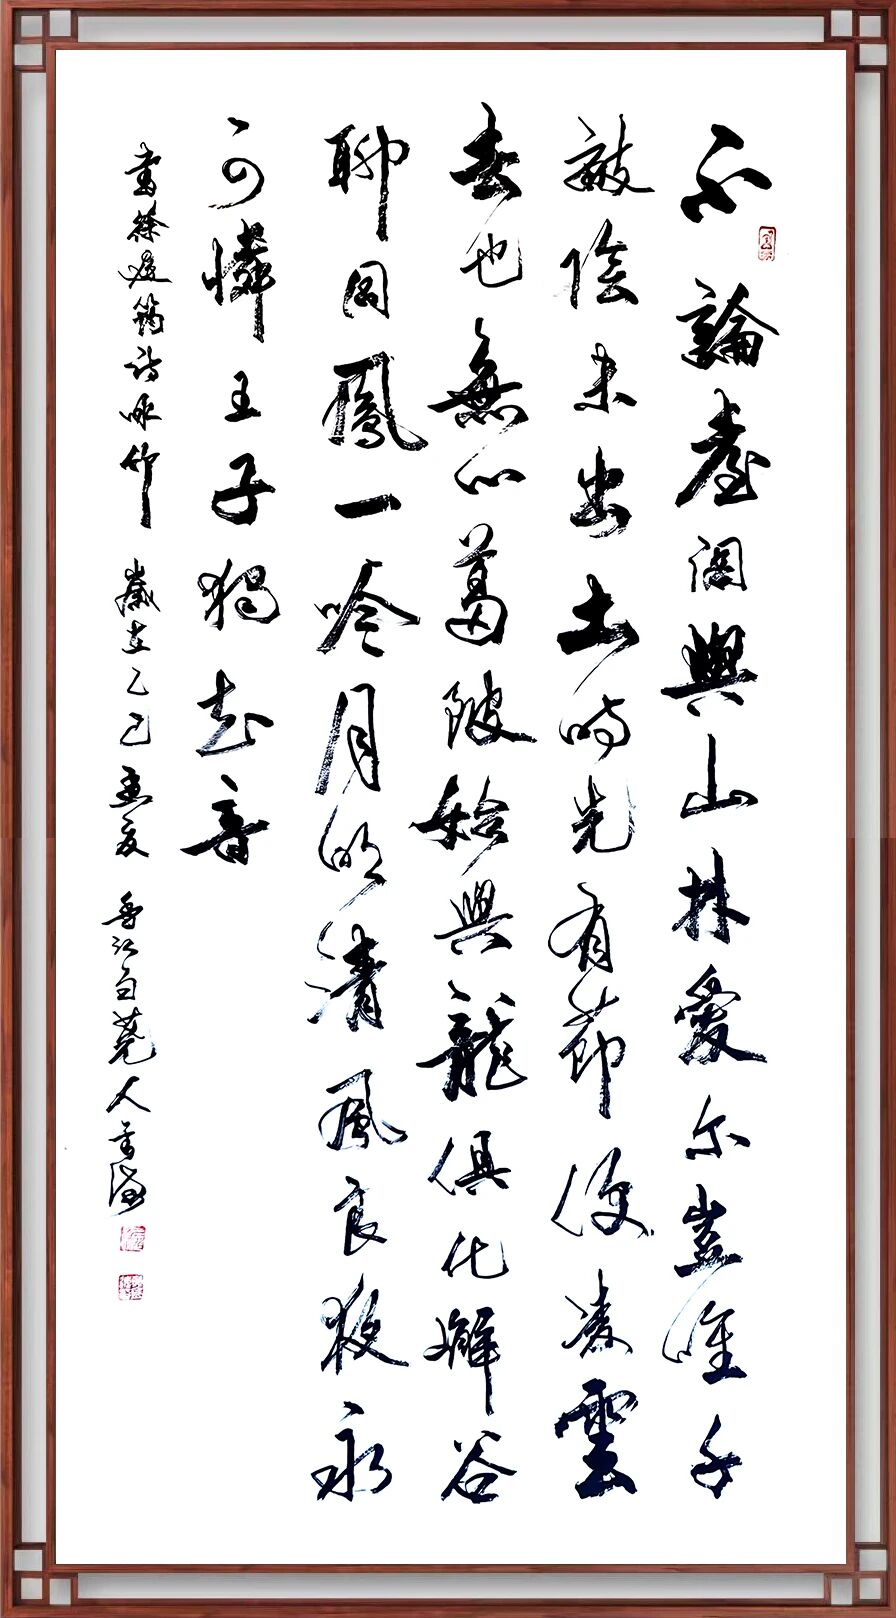 不論臺閣與山林愛尔豈唯千
畝陰未出土時先有節便凌雲
去也無心葛陂始與龍俱化嶰谷
聊同鳳一吟月明清風良夜永
可憐王子獨知音
書徐庭筠詩咏竹 歲在乙巳孟夏 江白人書